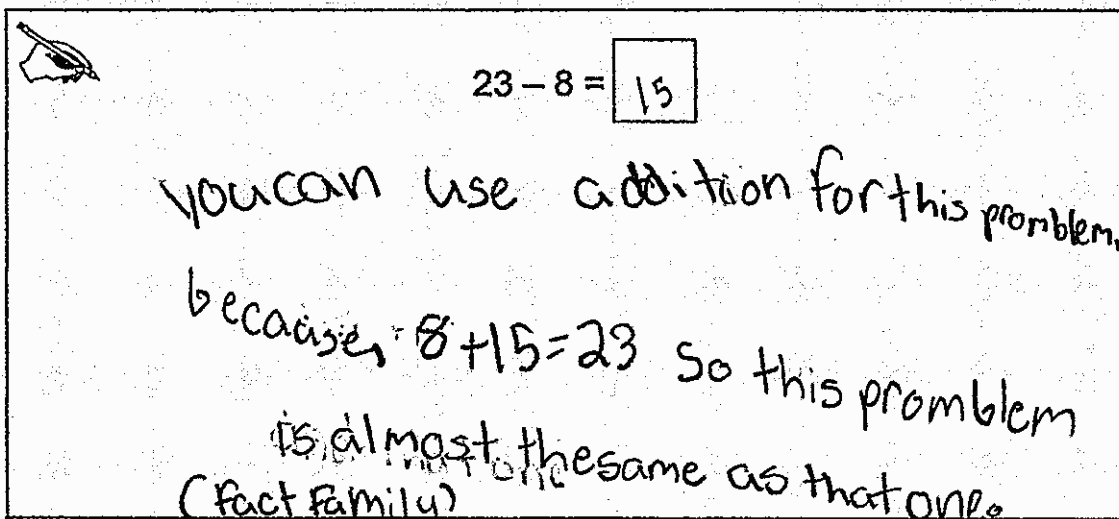 23 – 8 = 15
you can use addition for this promblem,
because, 8+15=23 so this promblem
is almost the same as that one.
(Fact Family)